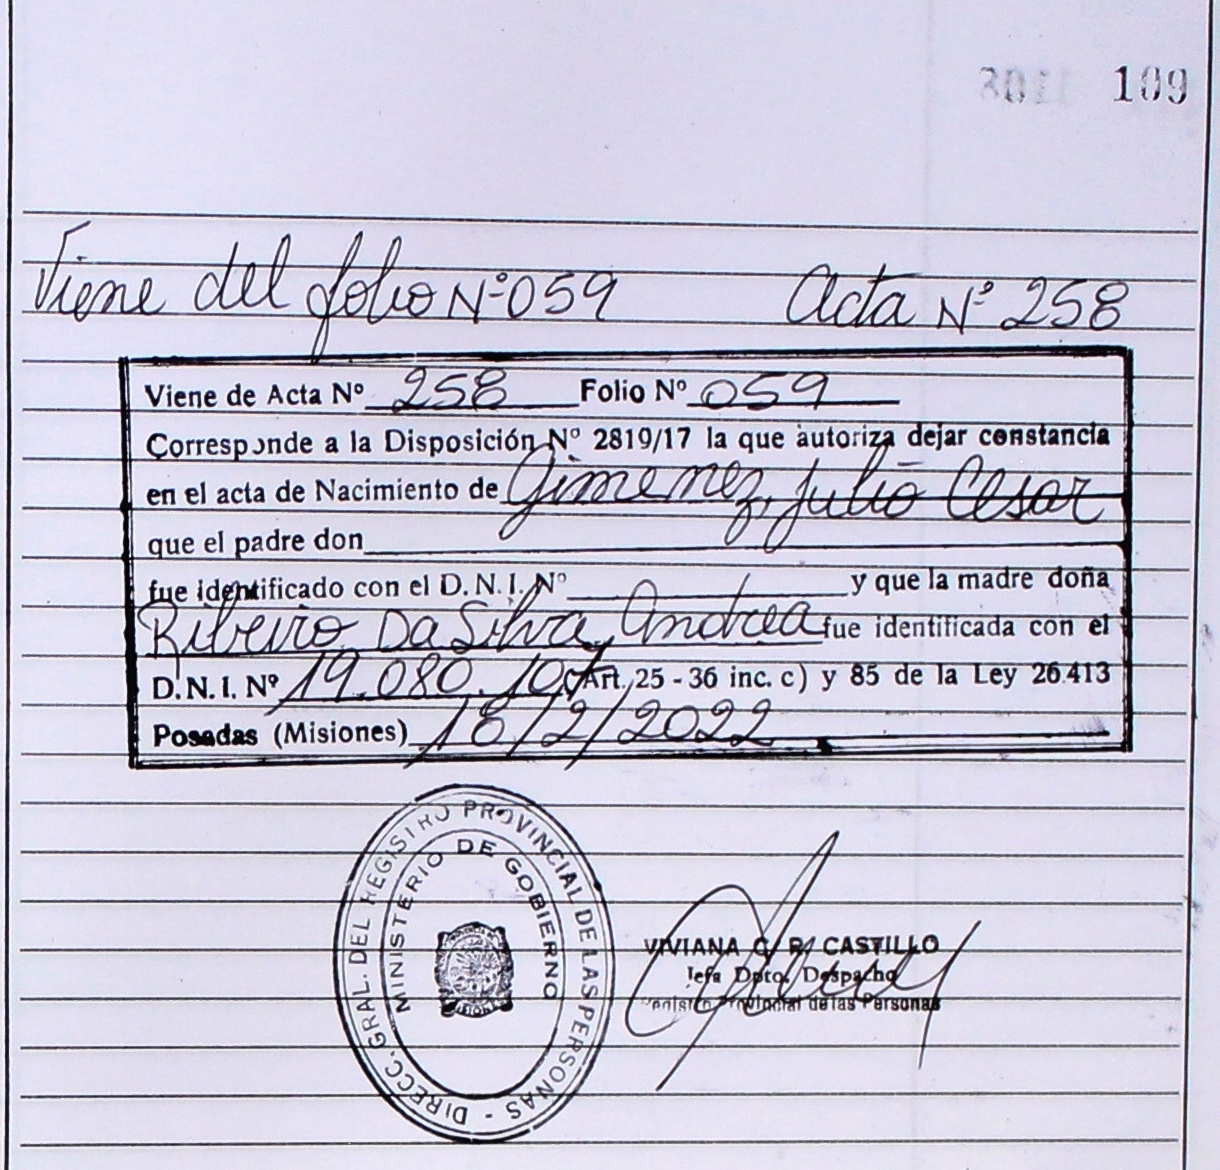 109
Viene del folio Nº 059 Acta Nº 258
Viene de Acta Nº 258 Folio Nº 059
Corresponde a la Disposición Nº 2819/17 la que autoriza dejar constancia
en el acta de Nacimiento de Gimenez, Julio Cesar
que el padre don
fue identificado con el D.N.I. Nº y que la madre doña
Ribeiro Da Silva, Andrea fue identificada con el
D.N.I. Nº 19.080.107 (Art. 25 - 36 inc. c) y 85 de la Ley 26.413
Posadas (Misiones) 18/2/2022
DIRECC. GRAL. DEL REGISTRO PROVINCIAL DE LAS PERSONAS -
MINISTERIO DE GOBIERNO
VIVIANA C. R. CASTILLO
Jefa Dpto. Despacho
Registro Provincial de las Personas